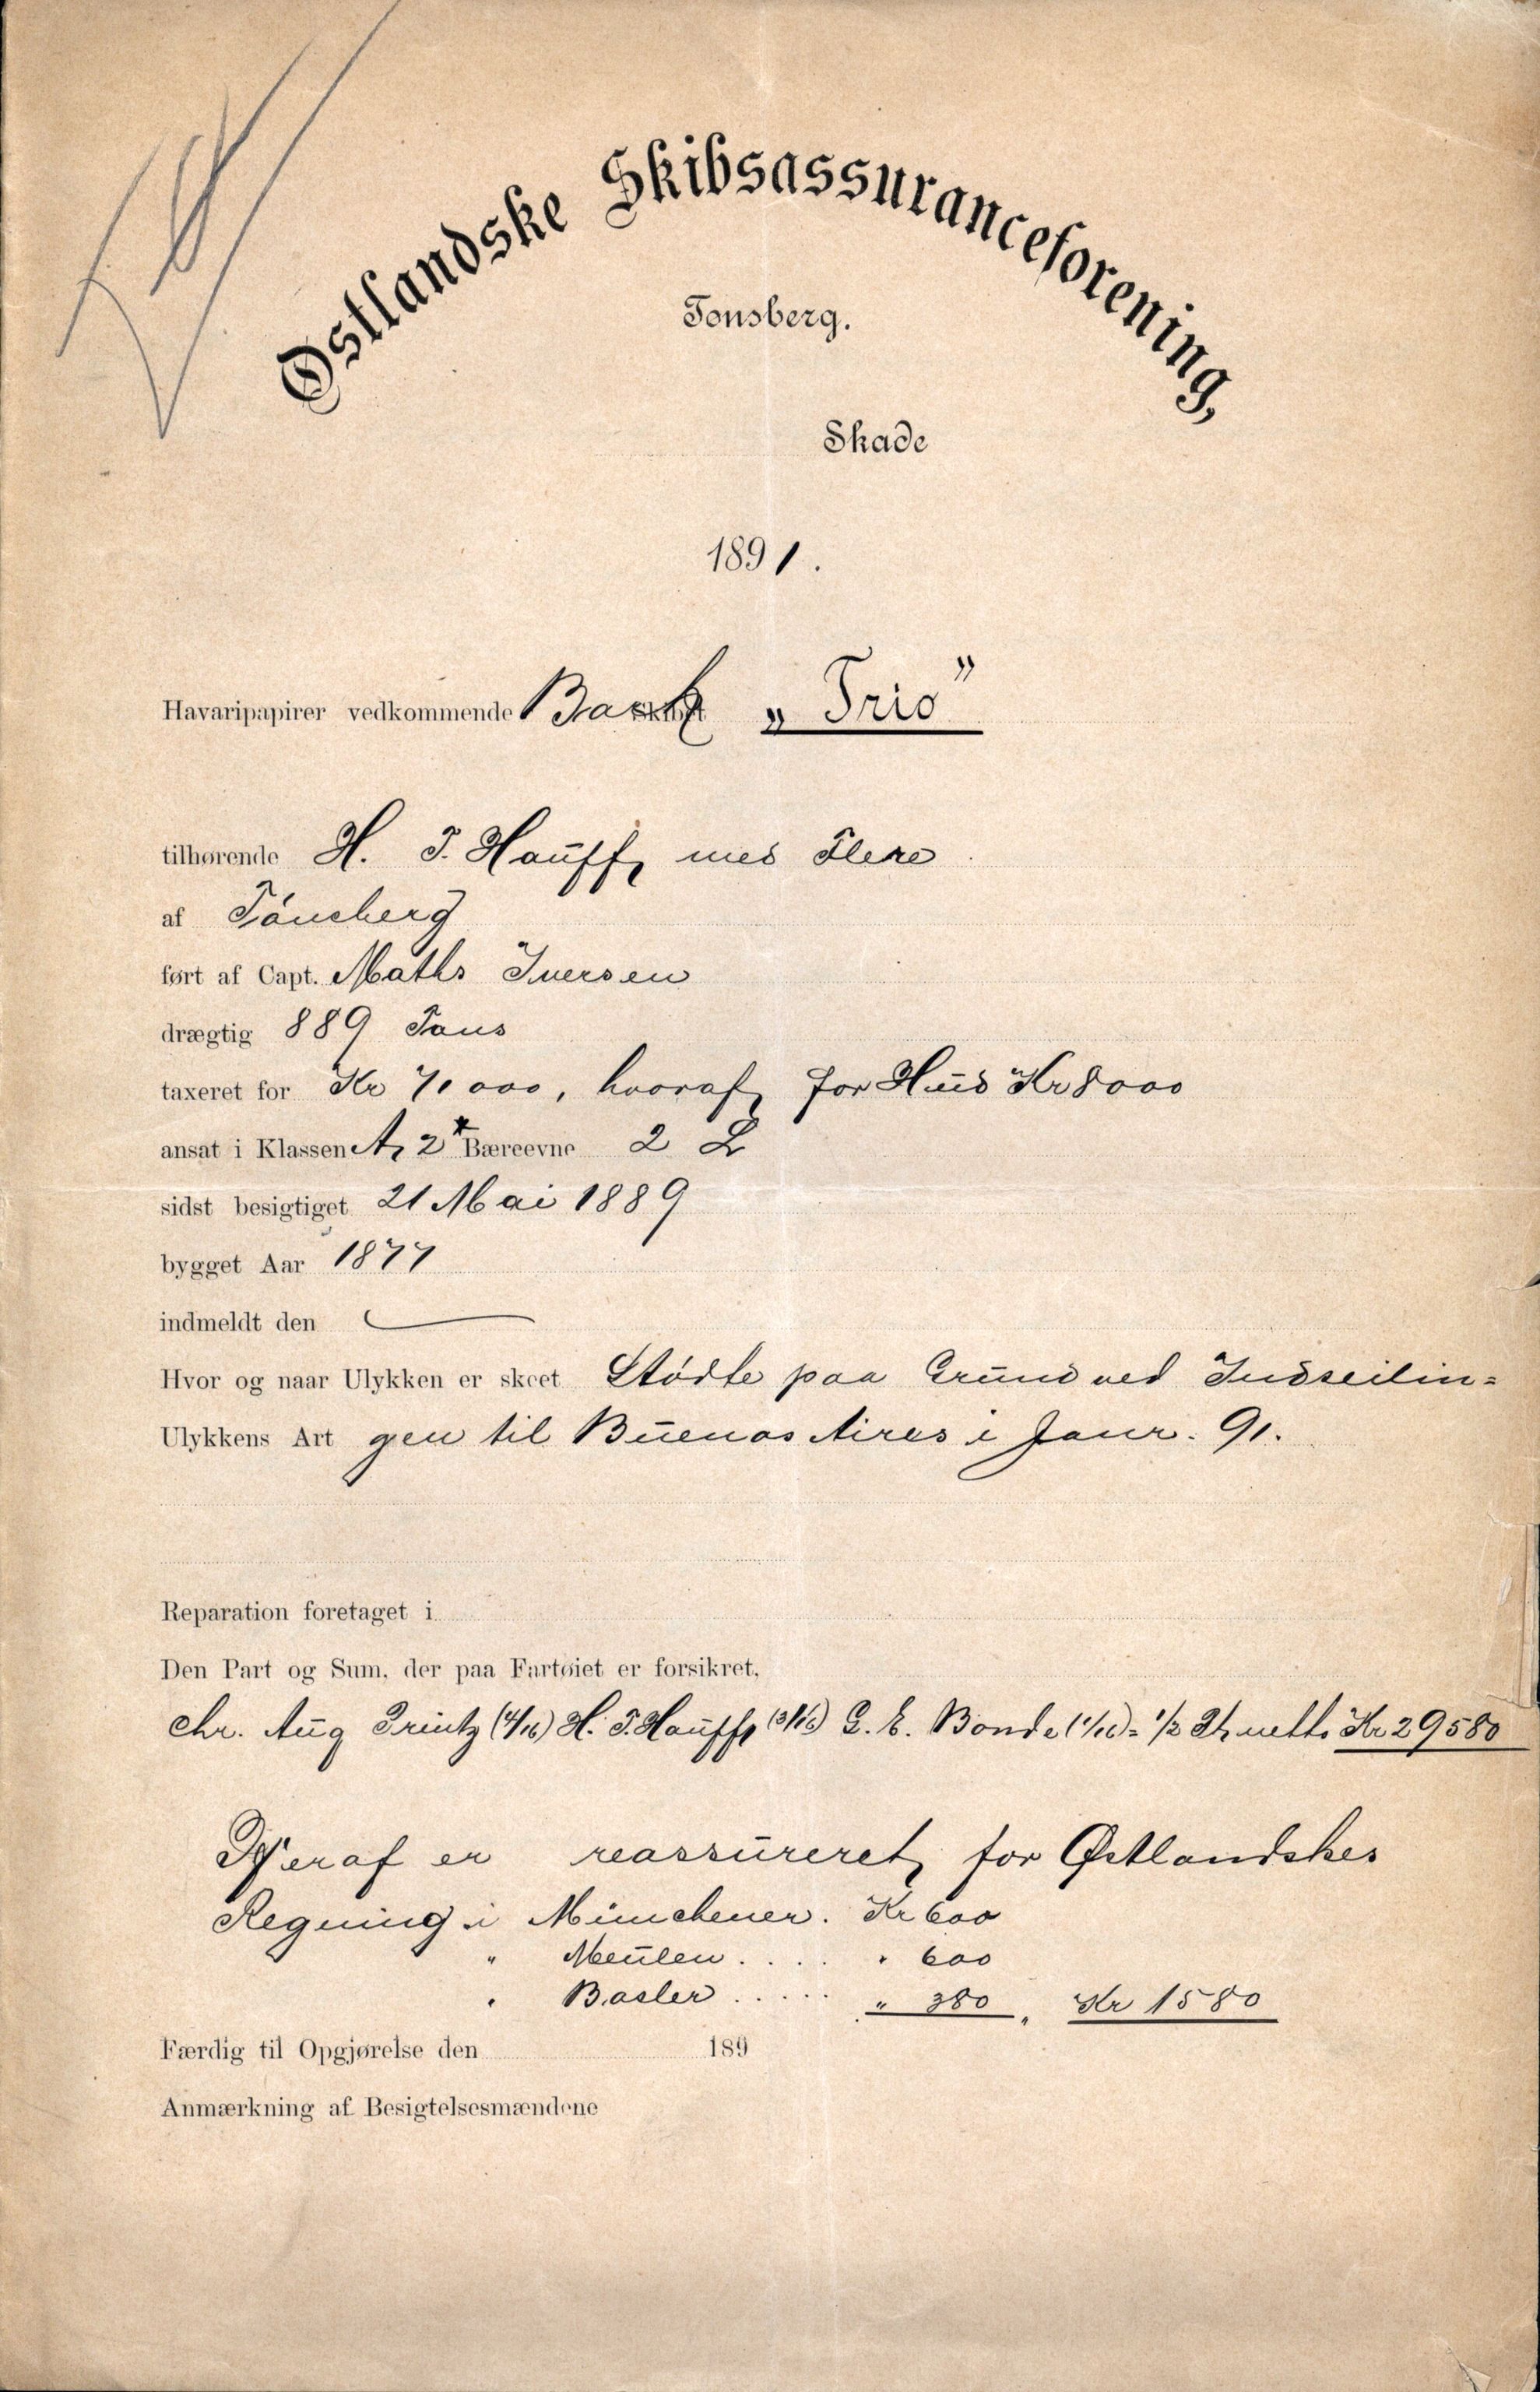 Østlandske Skibsassuranceforening,
Tønsberg.
Skade
1891.
Havaripapirer vedkommende Bark Skibet „Trio”
tilhørende H. T. Hauff med Flere
af Tönsberg
ført af Capt. Maths Iversen
drægtig 889 Tons
taxeret for Kr 71000, hvoraf for Hud Kr 8000
ansat i Klassen A, 2* Bæreevne 2 L
sidst besigtiget 21 Mai 1889
bygget Aar 1877
indmeldt den
Hvor og naar Ulykken er skeet Stødte paa Grund ved Indseilin=
Ulykkens Art gen til Buenos Aires i Janr. 91.
Reparation foretaget i
Den Part og Sum, der paa Fartøiet er forsikret,
Chr. Aug Printz (4/16) H. T. Hauff (3/16) G. E. Bonde (1/16) = 1/2 netto Kr 29580
Heraf er reassureret for Østlandskes
Regning i Münchener. Kr 600
" Meulen .... " 600
" Basler ..... " 380, Kr 1580
Færdig til Opgjørelse den 189
Anmærkning af Besigtelsesmændene